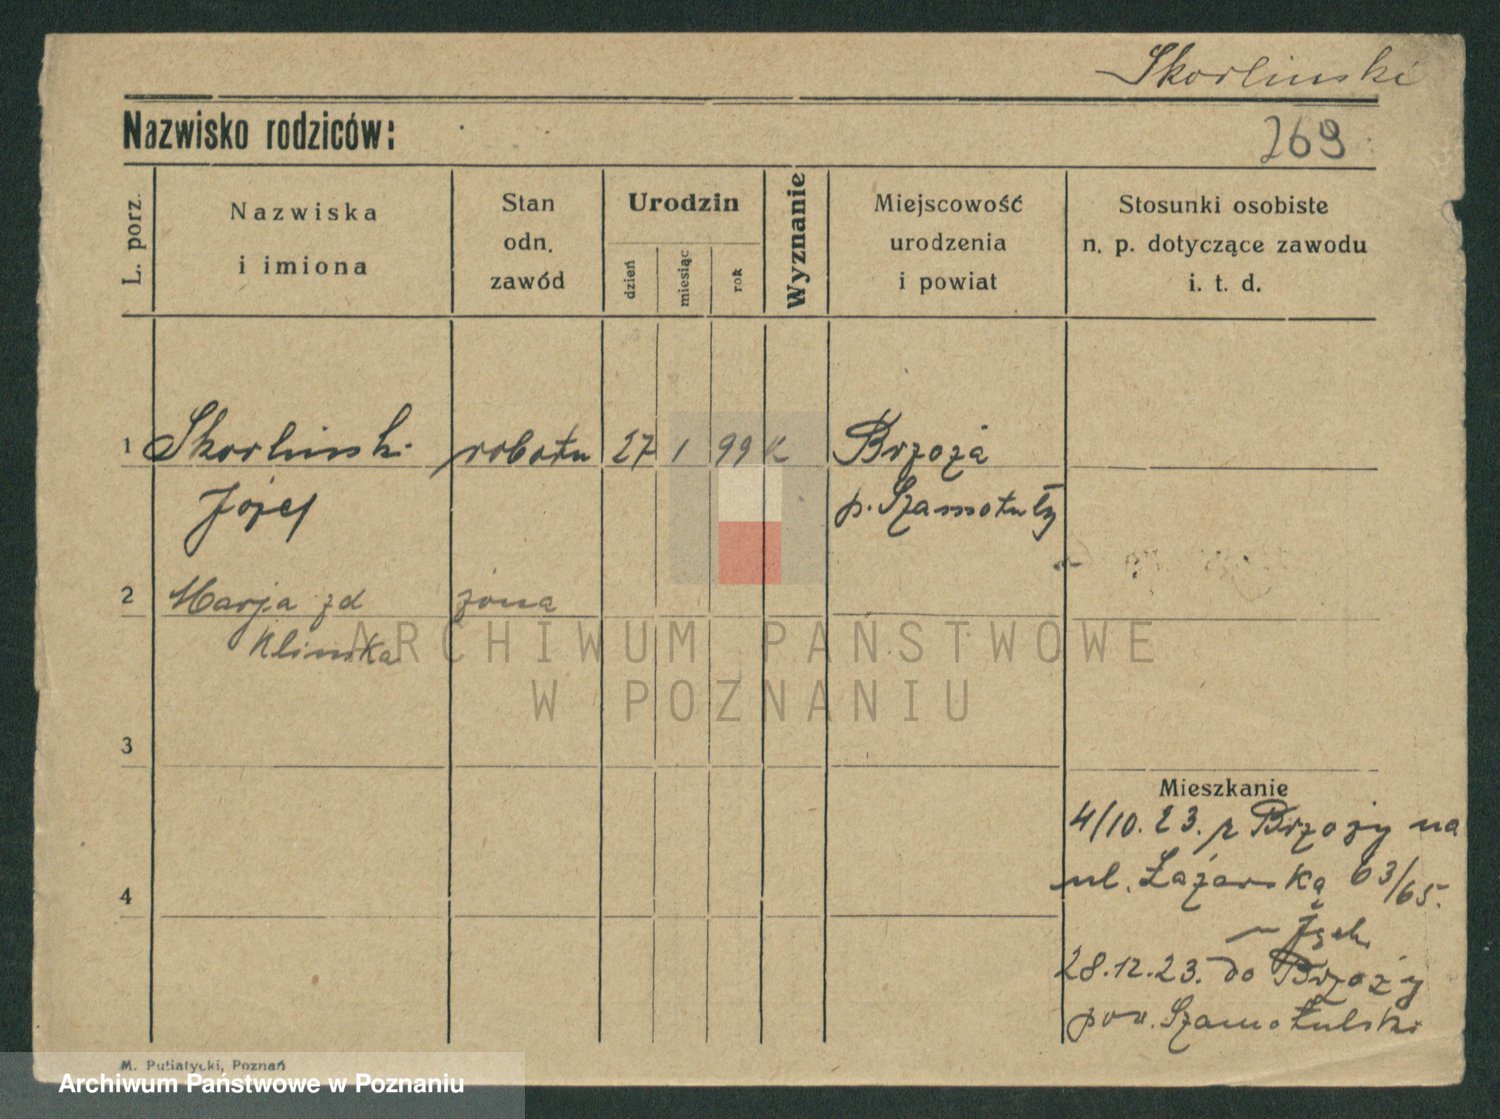 Skorlinski
Nazwisko rodziców:
269
L. porz.
Nazwiska
i imiona
Stan
odn.
zawód
Urodzin
dzień
miesiąc
rok
Wyznanie
Miejscowość
urodzenia
i powiat
Stosunki osobiste
n. p. dotyczące zawodu
i. t. d.
1 Skorlinski robotn 27 1 99 K Brzoza
Józef p. Szamotuły
2 Marja zd żona
Klimska
ARCHIWUM PAŃSTWOWE
W POZNANIU
3
Mieszkanie
4/10.23. z Brzozy na
ul. Łazarską 63/65.
4
28.12.23. do Brzozy
pow. Szamotulski
M. Putiatycki, Poznań
Archiwum Państwowe w Poznaniu